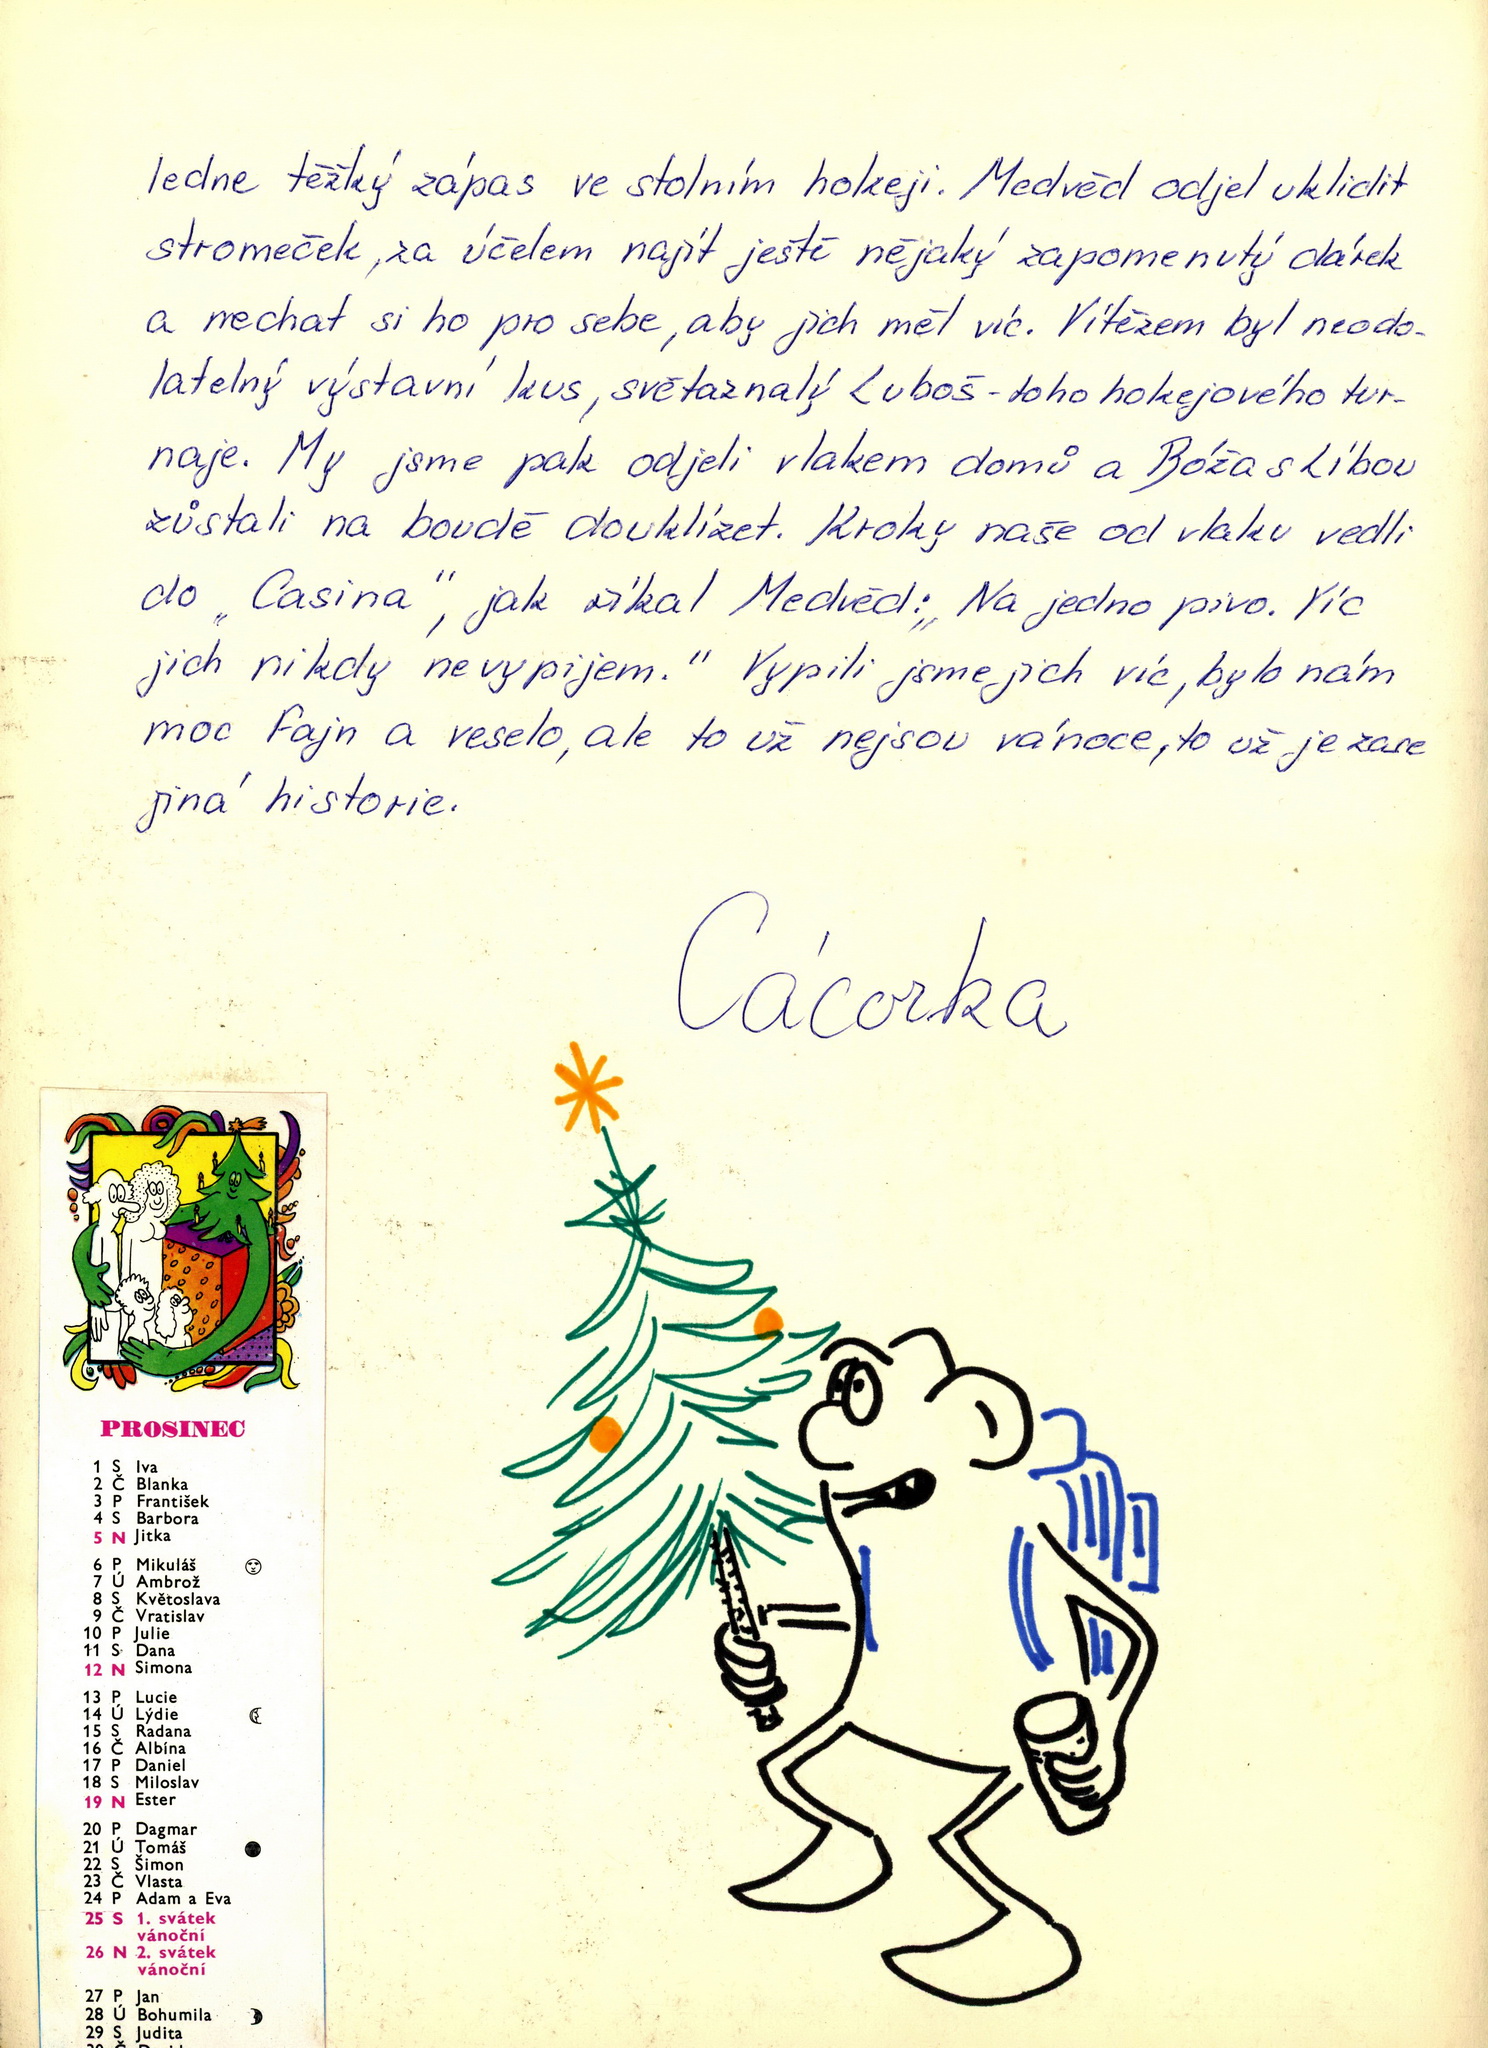 ledne těžký zápas ve stolním hokeji. Medvěd odjel uklidit
stromeček, za účelem najít ještě nějaký zapomenutý dárek
a nechat si ho pro sebe, aby jich měl víc. Vítězem byl neodo-
latelný výstavní kus, světaznalý Luboš - toho hokejového tur-
naje. My jsme pak odjeli vlakem domů a Bóža s Líbou
zůstali na boudě douklízet. Kroky naše od vlaku vedli
do „Casina", jak říkal Medvěd: „Na jedno pivo. Víc
jich nikdy nevypijem." Vypili jsme jich víc, bylo nám
moc fajn a veselo, ale to už nejsou vánoce, to už je zase
jiná historie.
Cácorka
PROSINEC
1 S Iva
2 Č Blanka
3 P František
4 S Barbora
5 N Jitka
6 P Mikuláš
7 Ú Ambrož
8 S Květoslava
9 Č Vratislav
10 P Julie
11 S Dana
12 N Simona
13 P Lucie
14 Ú Lýdie
15 S Radana
16 Č Albína
17 P Daniel
18 S Miloslav
19 N Ester
20 P Dagmar
21 Ú Tomáš
22 S Šimon
23 Č Vlasta
24 P Adam a Eva
25 S 1. svátek
vánoční
26 N 2. svátek
vánoční
27 P Jan
28 Ú Bohumila
29 S Judita